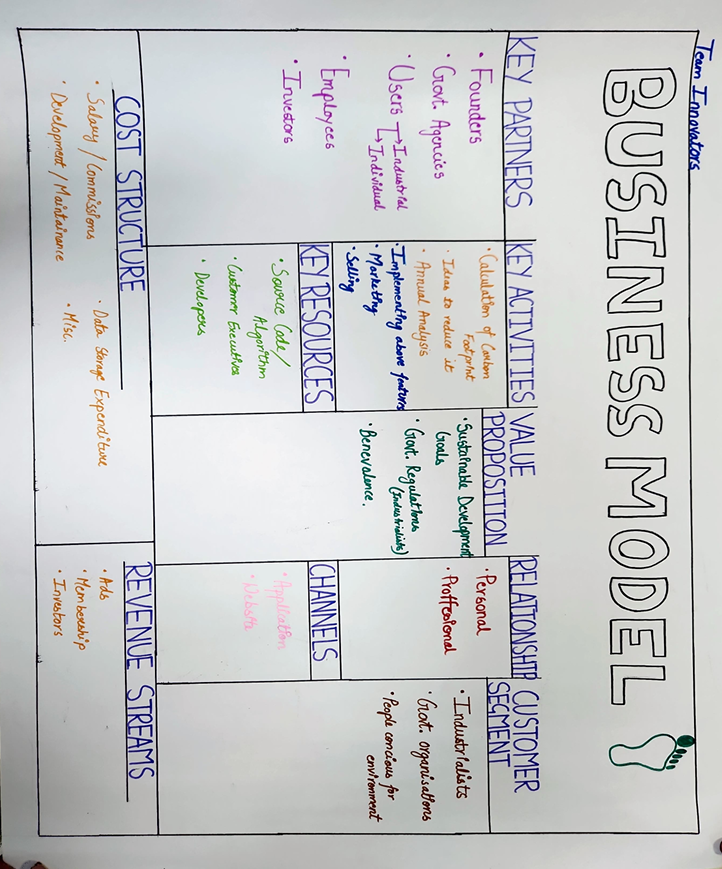 Team Innovators
BUSINESS MODEL
KEY PARTNERS
• Founders
• Govt. Agencies
• Users → Industrial
↳ Individual
• Employees
• Investors
KEY ACTIVITIES
• Calculation of Carbon
Footprint
• Ideas to reduce it
• Annual Analysis
• Implementing above features
• Marketing
• Selling
KEY RESOURCES
• Source Code/
Algorithm
• Customer Executives
• Developers
VALUE
PROPOSITION
• Sustainable Development
Goals
• Govt. Regulations
(Industrialists)
• Benevalence.
RELATIONSHIP
• Personal
• Proffesional
CHANNELS
• Application
• Website
CUSTOMER
SEGMENT
• Industrialists
• Govt. organisations
• People concious for
environment
COST STRUCTURE
• Salary / Commissions
• Development / Maintainance
• Data Storage Expenditure
• Misc.
REVENUE STREAMS
• Ads
• Membership
• Investors